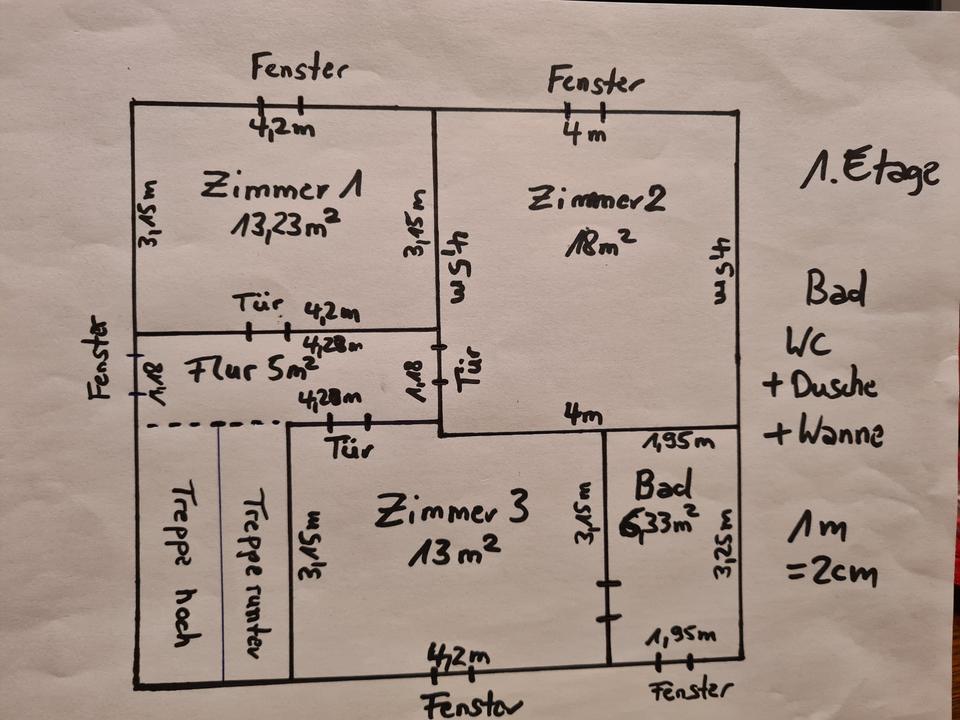 Fenster
4,2m
Fenster
4m
1. Etage
Zimmer 1
13,23m²
3,15m
3,15m
Zimmer 2
18m²
4,5m
4,5m
Tür
4,2m
Fenster
1,18
Flur 5m²
4,28m
4,28m
1,18
Tür
Tür
4m
1,95m
Treppe hoch
Treppe runter
3,15m
Zimmer 3
13m²
3,15m
Bad
6,33m²
3,25m
4,2m
Fenster
1,95m
Fenster
Bad
WC
+ Dusche
+ Wanne
1m
= 2cm